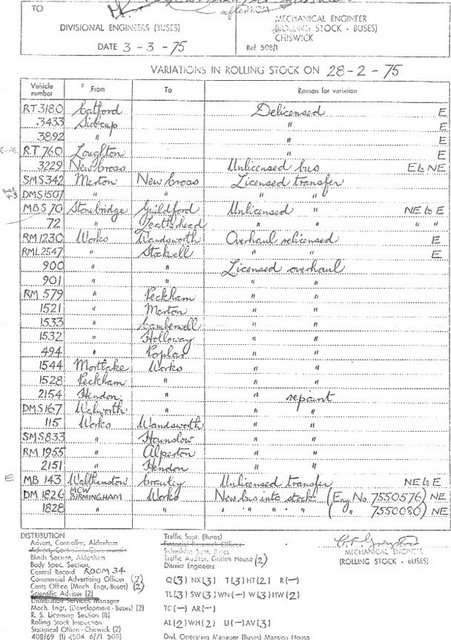 TO
FROM
DIVISIONAL ENGINEERS (BUSES)
MECHANICAL ENGINEER
(ROLLING STOCK - BUSES)
CHISWICK
DATE 3-3-75
Ref. 508/1
VARIATIONS IN ROLLING STOCK ON 28-2-75
Vehicle number From To Reason for variation
RT 3180 Catford Delicensed E
3433 Sidcup " E
3892 " " E
RT 760 Loughton " E
3229 New Cross Unlicensed bus E to NE
SMS 342 Merton New Cross Licensed transfer
DMS 1507 " " "
MBS 70 Stonebridge Guildford Unlicensed " NE to E
72 " Leatherhead " " " "
RM 1230 Works Wandsworth Overhaul relicensed E
RML 2547 " Stockwell " " E
900 " " Licensed overhaul
901 " " " "
RM 579 " Peckham " "
1521 " Merton " "
1533 " Camberwell " "
1532 " Holloway " "
494 " Poplar " "
1544 Mortlake Works " "
1528 Peckham " " "
2154 Hendon " " repaint
DMS 167 Walworth " " "
115 Works Wandsworth " "
SMS 833 " Hounslow " "
RM 1955 " Alperton " "
2151 " Hendon " "
E MB 143 Walthamstow Crawley Unlicensed transfer NE to E
DM 1826 MCW BIRMINGHAM Works New bus into stock (Eng No. 7550576) NE
1828 " " " " " " ( " " 7550080) NE
DISTRIBUTION
Advert. Controller, Aldenham
Block Section, Aldenham
Body Spec. Section
Central Record ROOM 34
Commercial Advertising Officer (2)
Cents Office (Mech. Engr. Buses) (2)
Scientific Adviser (2)
Distribution Services Manager
Mech. Engr. (Development - Buses) (2)
R. S. Licensing Section (8)
Rolling Stock Inspection
Statistical Office - Chiswick (2)
Traffic Supt. (Buses)
Schedules Supt. Buses
Traffic Auditor, Garden House (2)
District Engineers
Q (3) NX (3) T (3) HT (2) R (—)
TL (3) SW (3) WN (—) W (3) HW (2)
TC (—) AR (—)
AL (2) WH (2) U (—) AV (3)
Divl. Operating Manager (Buses) Mansion House
MECHANICAL ENGINEER
(ROLLING STOCK - BUSES)